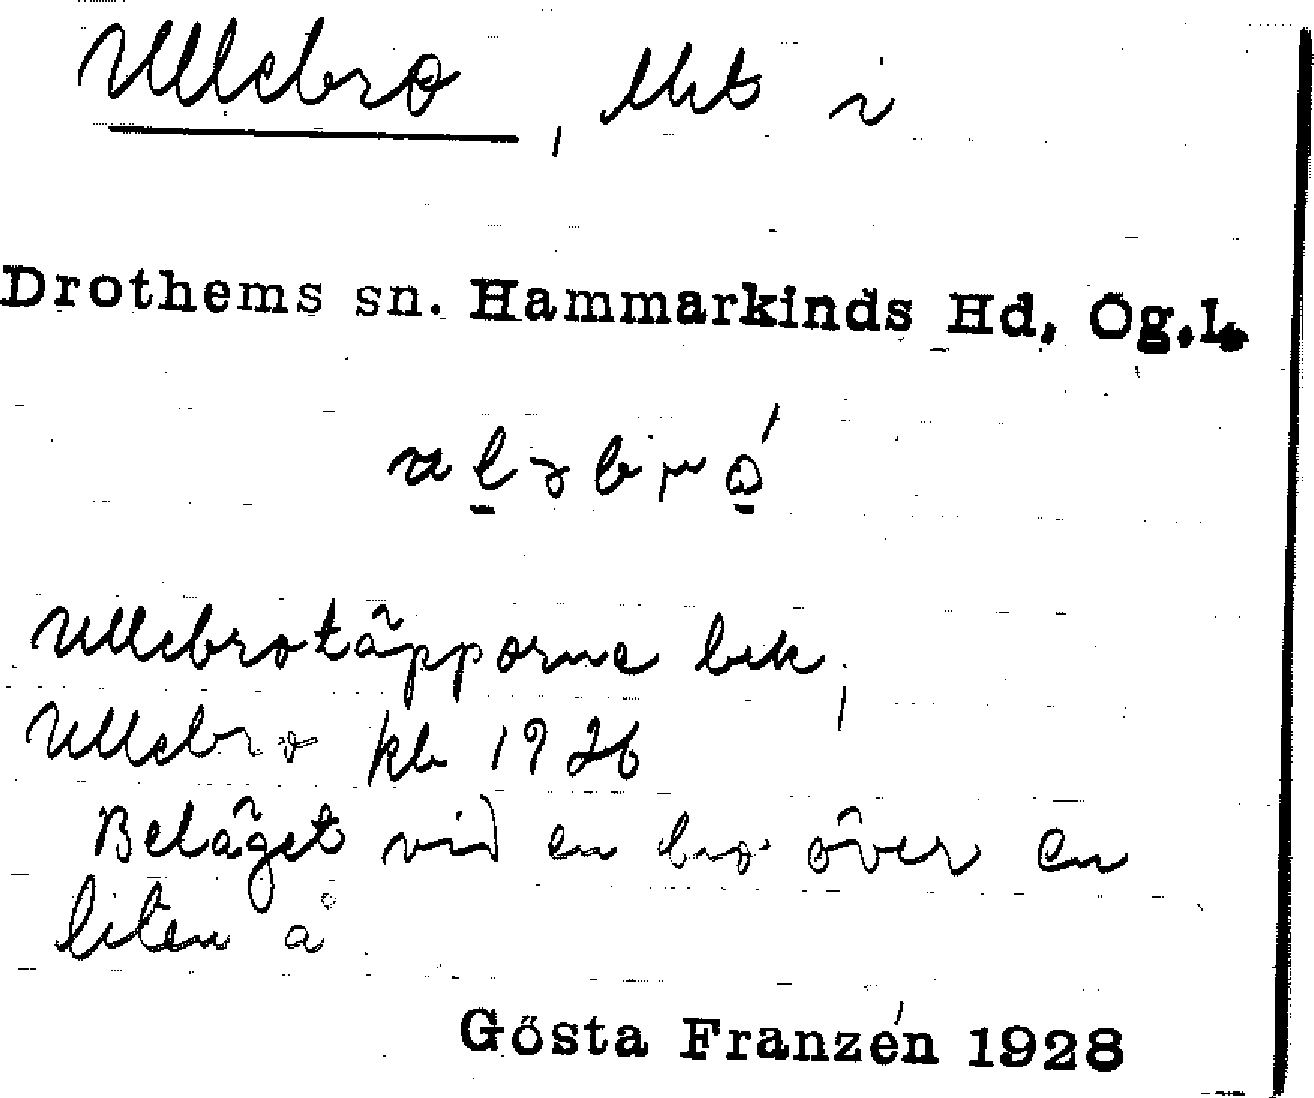 Ullebro, lht i
Drothems sn. Hammarkinds Hd, Ög.L.
Ullebrotäpporna bek,
Ullebro kb 1926
Beläget vid en bro över en
liten å
Gösta Franzén 1928